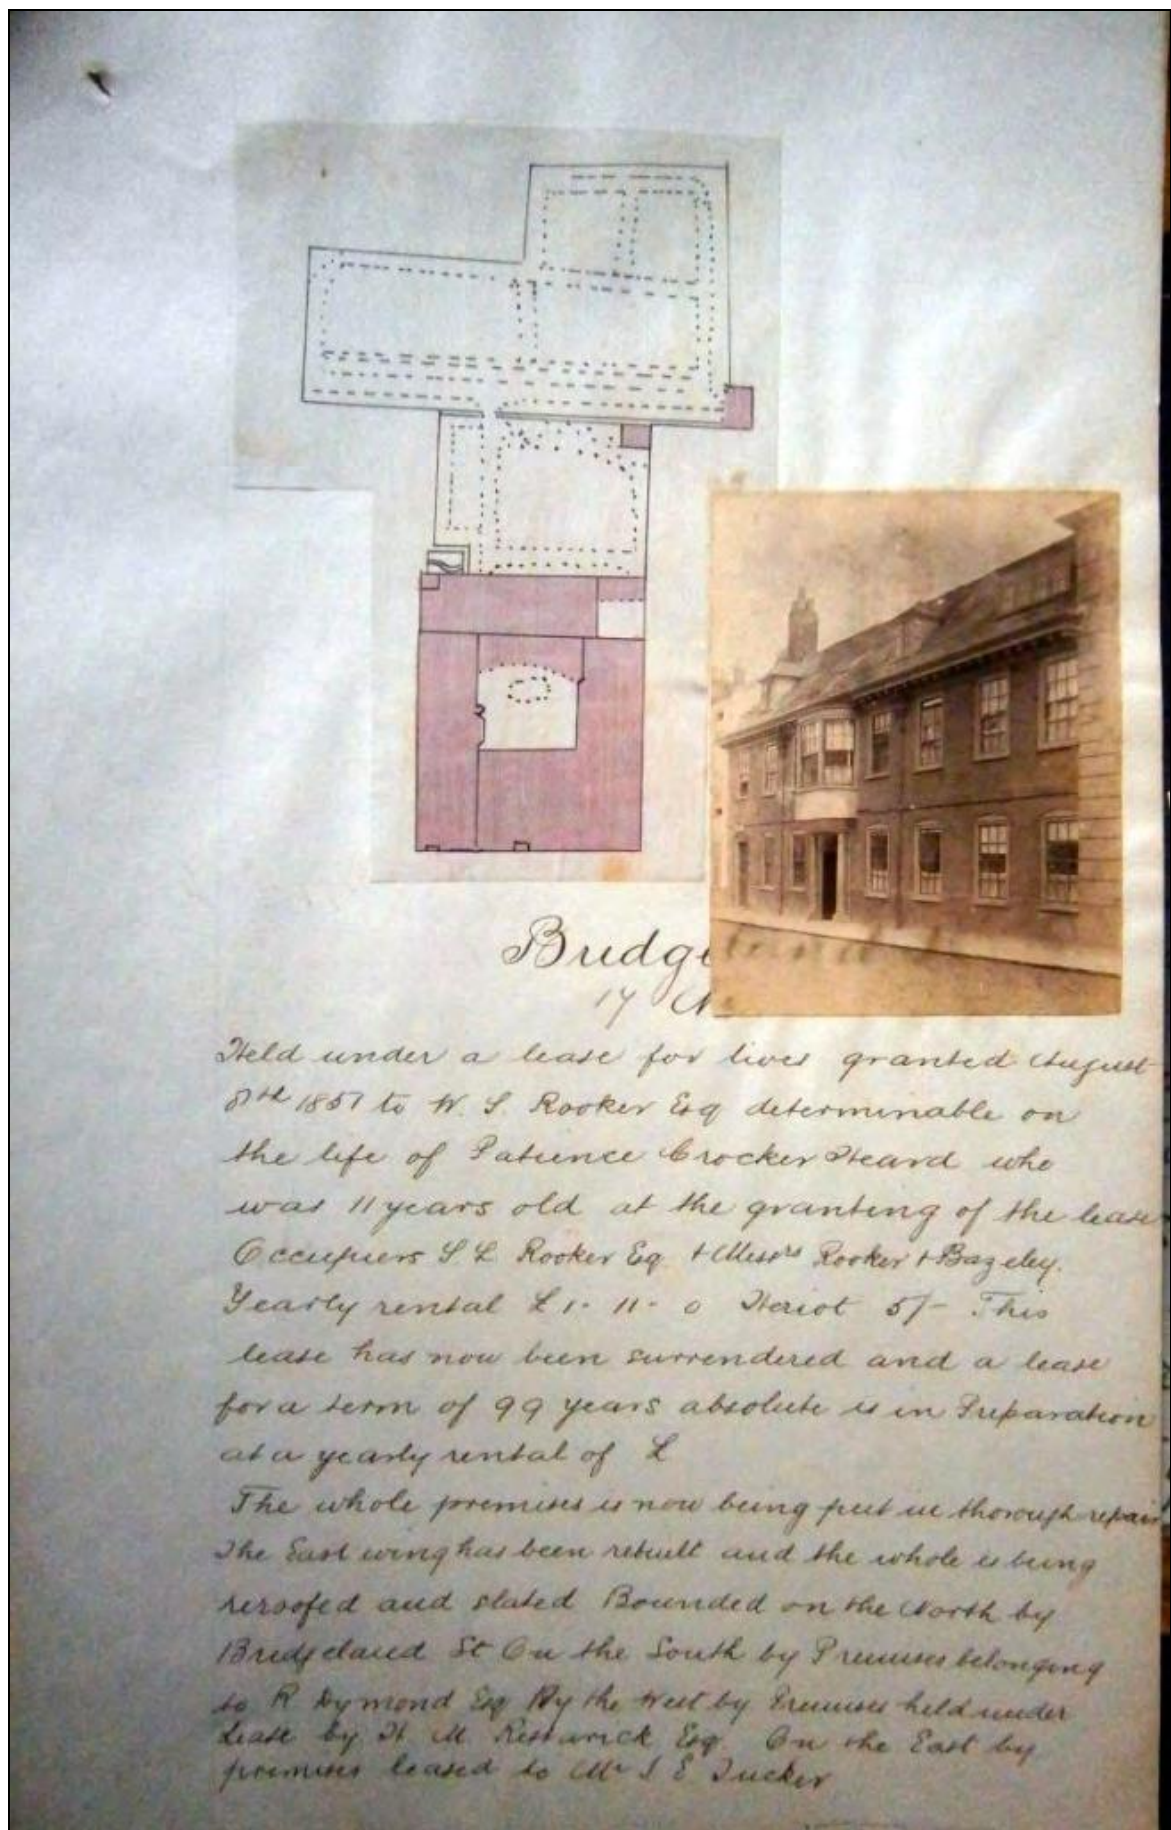 Bridge
17 N
Held under a lease for lives granted August
8th 1857 to W. S. Rooker Esq determinable on
the life of Patience Crocker Heard who
was 11 years old at the granting of the lease
Occupiers S L Rooker Esq + Messrs Rooker + Bazeley.
Yearly rental £1-11-0 Heriot 5/- This
lease has now been surrendered and a lease
for a term of 99 years absolute is in Preparation
at a yearly rental of £
The whole premises is now being put in thorough repair
The East wing has been rebuilt and the whole is being
reroofed and slated Bounded on the North by
Bridgeland St On the South by Premises belonging
to R Dymond Esq By the West by Premises held under
Lease by H M Restarick Esq. On the East by
premises leased to Mr S E Tucker